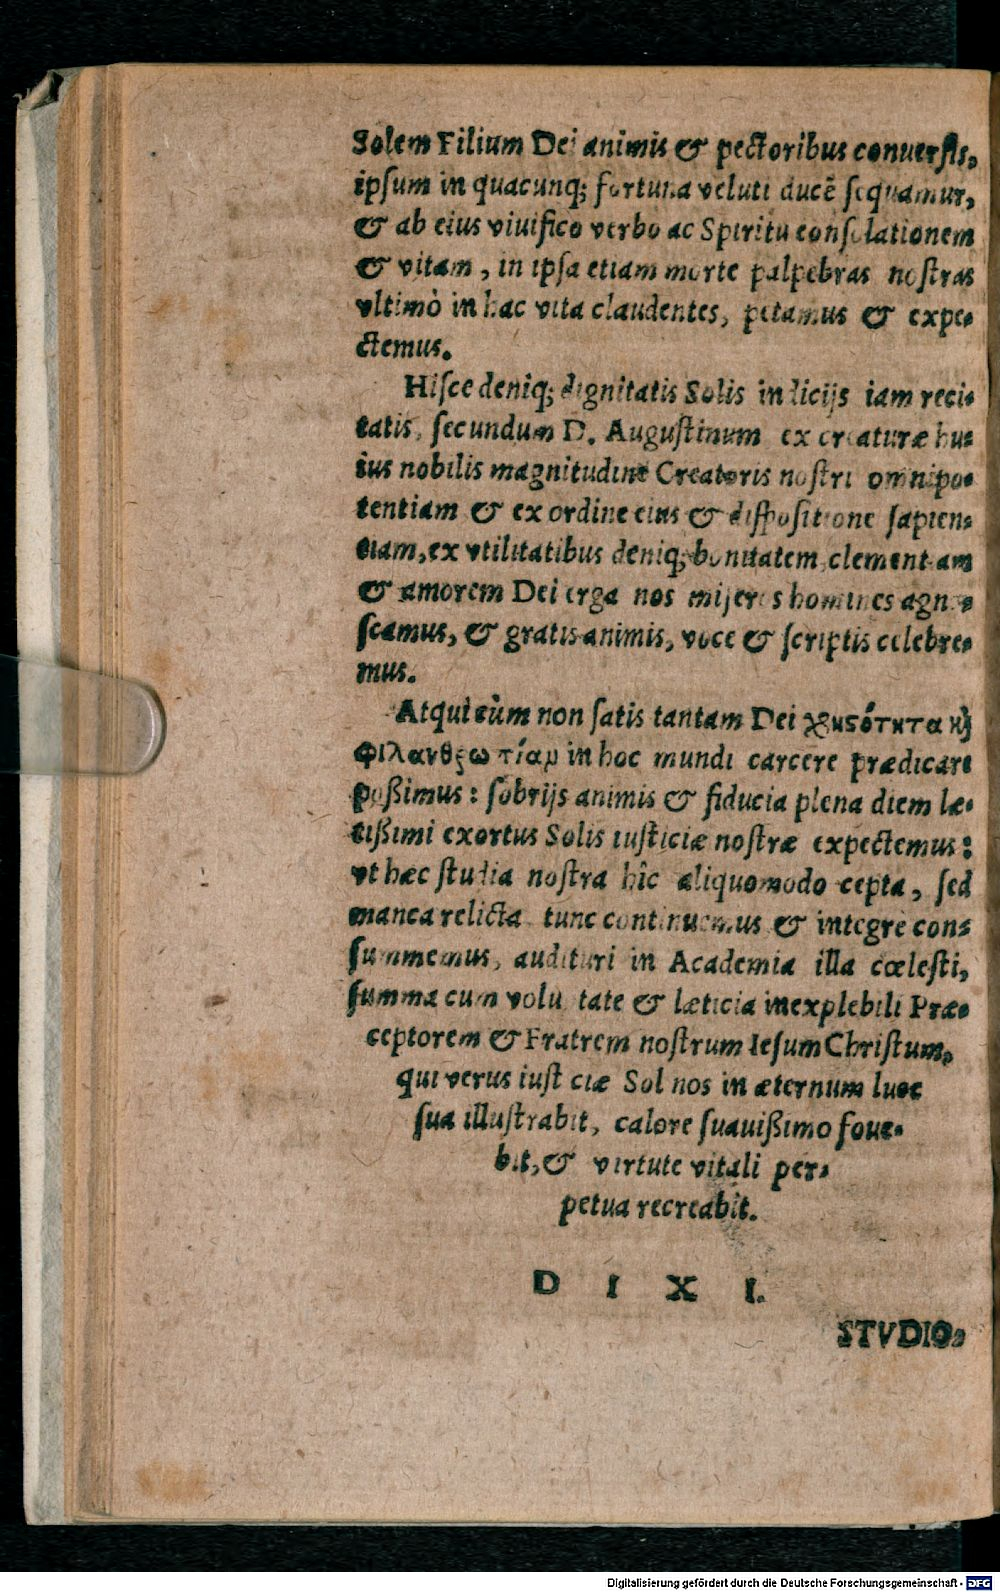 Solem Filium Dei animis & pectoribus conuersis,
ipsum in quacunq; fortuna veluti ducē sequamur,
& ab eius viuifico verbo ac Spiritu consolationem
& vitam, in ipsa etiam morte palpebras nostras
vltimò in hac vita claudentes, petamus & expe-
ctemus.
Hisce deniq; dignitatis Solis indicijs iam reci-
tatis, secundum D. Augustinum ex creaturæ hu-
ius nobilis magnitudine Creatoris nostri omnipo-
tentiam & ex ordine eius & dispositione sapien-
tiam, ex vtilitatibus deniq; bonitatem, clementiam
& amorem Dei erga nos miseros homines agno-
scamus, & gratis animis, voce & scriptis celebre-
mus.
Atqui cùm non satis tantam Dei χρηϛότητα καὶ
φιλανθρωπίαμ in hoc mundi carcere prædicare
poßimus: sobrijs animis & fiducia plena diem læ-
tißimi exortus Solis iusticiæ nostræ expectemus:
vt hæc studia nostra hîc aliquomodo cepta, sed
manca relicta tunc continuemus & integrè con-
summemus, audituri in Academia illa cœlesti,
summa cum voluptate & læticia inexplebili Præ-
ceptorem & Fratrem nostrum Iesum Christum,
qui verus iusticiæ Sol nos in æternum luce
sua illustrabit, calore suauißimo foue-
bit, & virtute vitali per-
petua recreabit.
D I X I.
STVDIO-
Digitalisierung gefördert durch die Deutsche Forschungsgemeinschaft - DFG